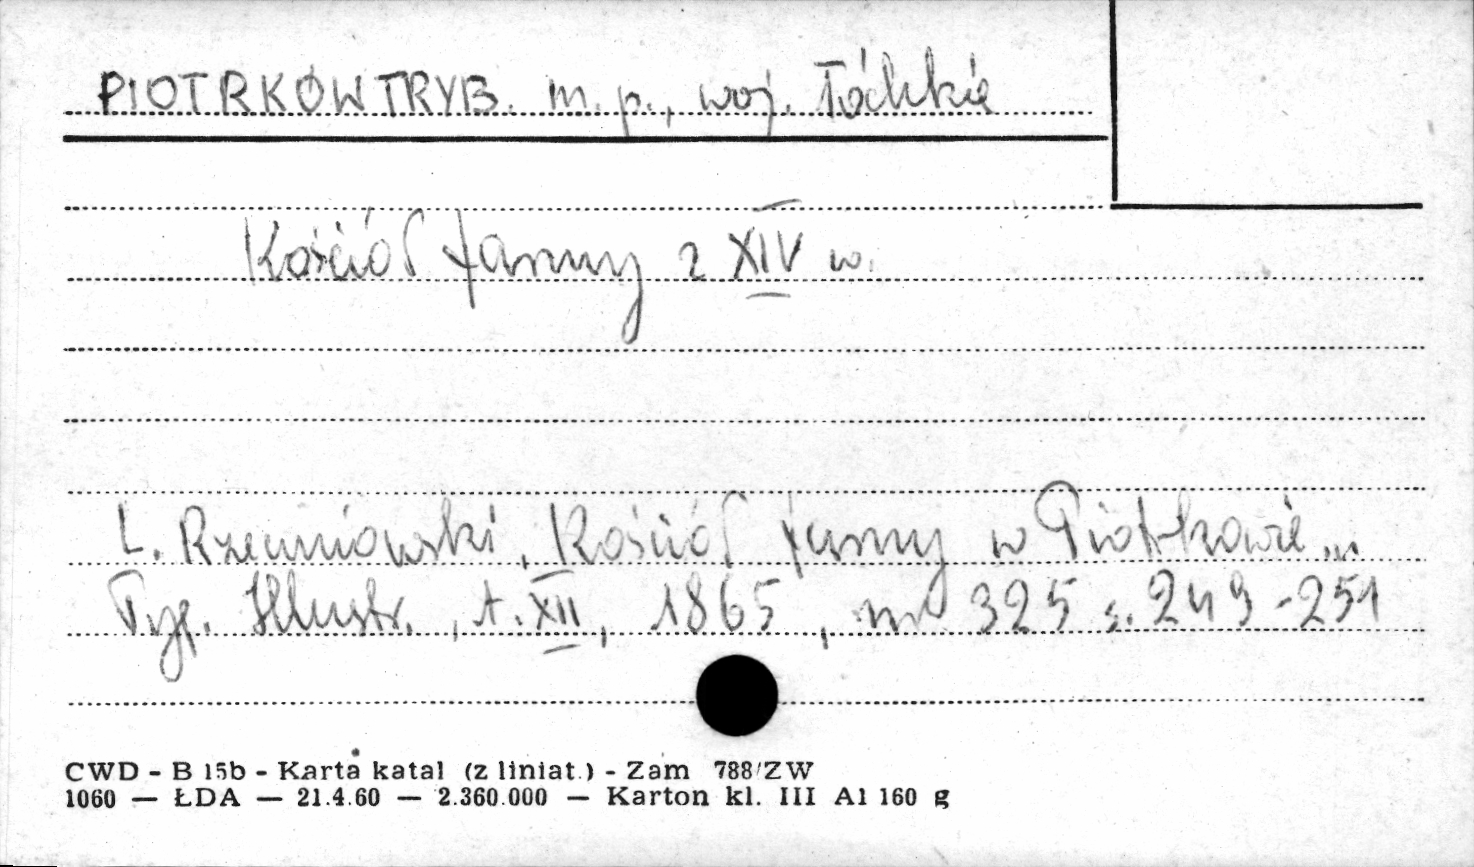 PIOTRKÓW TRYB. m. p., woj. Łódzkie
Kościół farny z XIV w.
L. Rzeczniowski, Kościół farny w Piotrkowie „
Tyg. Illustr., t. XII, 1865, nr 325 s. 249-251
CWD - B 15b - Karta katal (z liniat.) - Zam 788/ZW
1060 — ŁDA — 21.4.60 — 2.360.000 — Karton kl. III A1 160 g